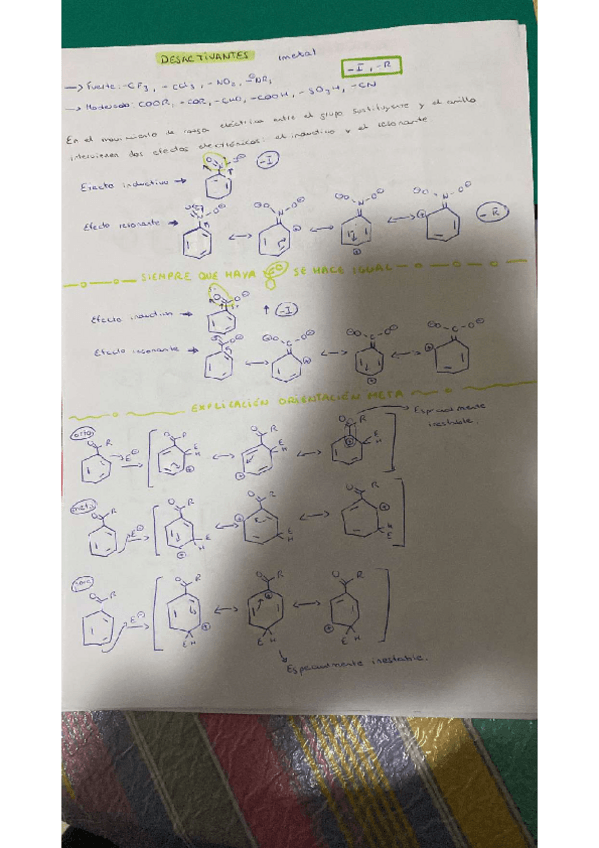 DESACTIVANTES (meta)
-I, -R
→ Fuerte: -CF₃, -CCl₃, -NO₂,
→ Moderado: COOR, -COR, -CHO, -COOH, -SO₃H, -CN
En el movimiento de carga eléctrica entre el grupo sustituyente y el anillo
intervienen dos efectos electrónicos: el inductivo y el resonante
Efecto inductivo → -I
Efecto resonante → -R
SIEMPRE QUE HAYA SE HACE IGUAL
Efecto inductivo → ↑ -I
Efecto resonante →
EXPLICACIÓN ORIENTACIÓN META
Especialmente
inestable.
orto
meta
para
Especialmente inestable.